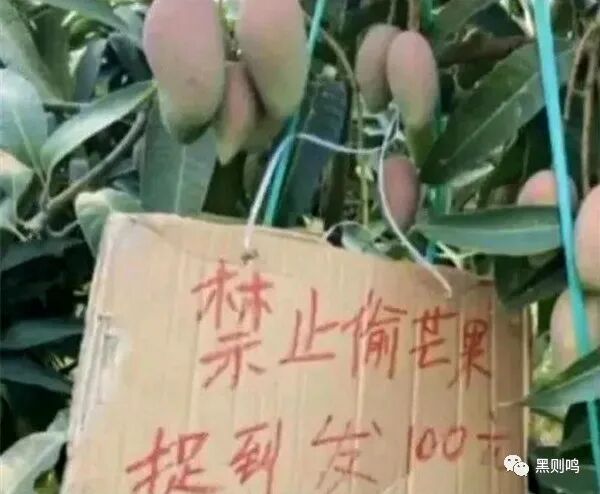 禁止偷芒果
捉到发100元
黑则鸣